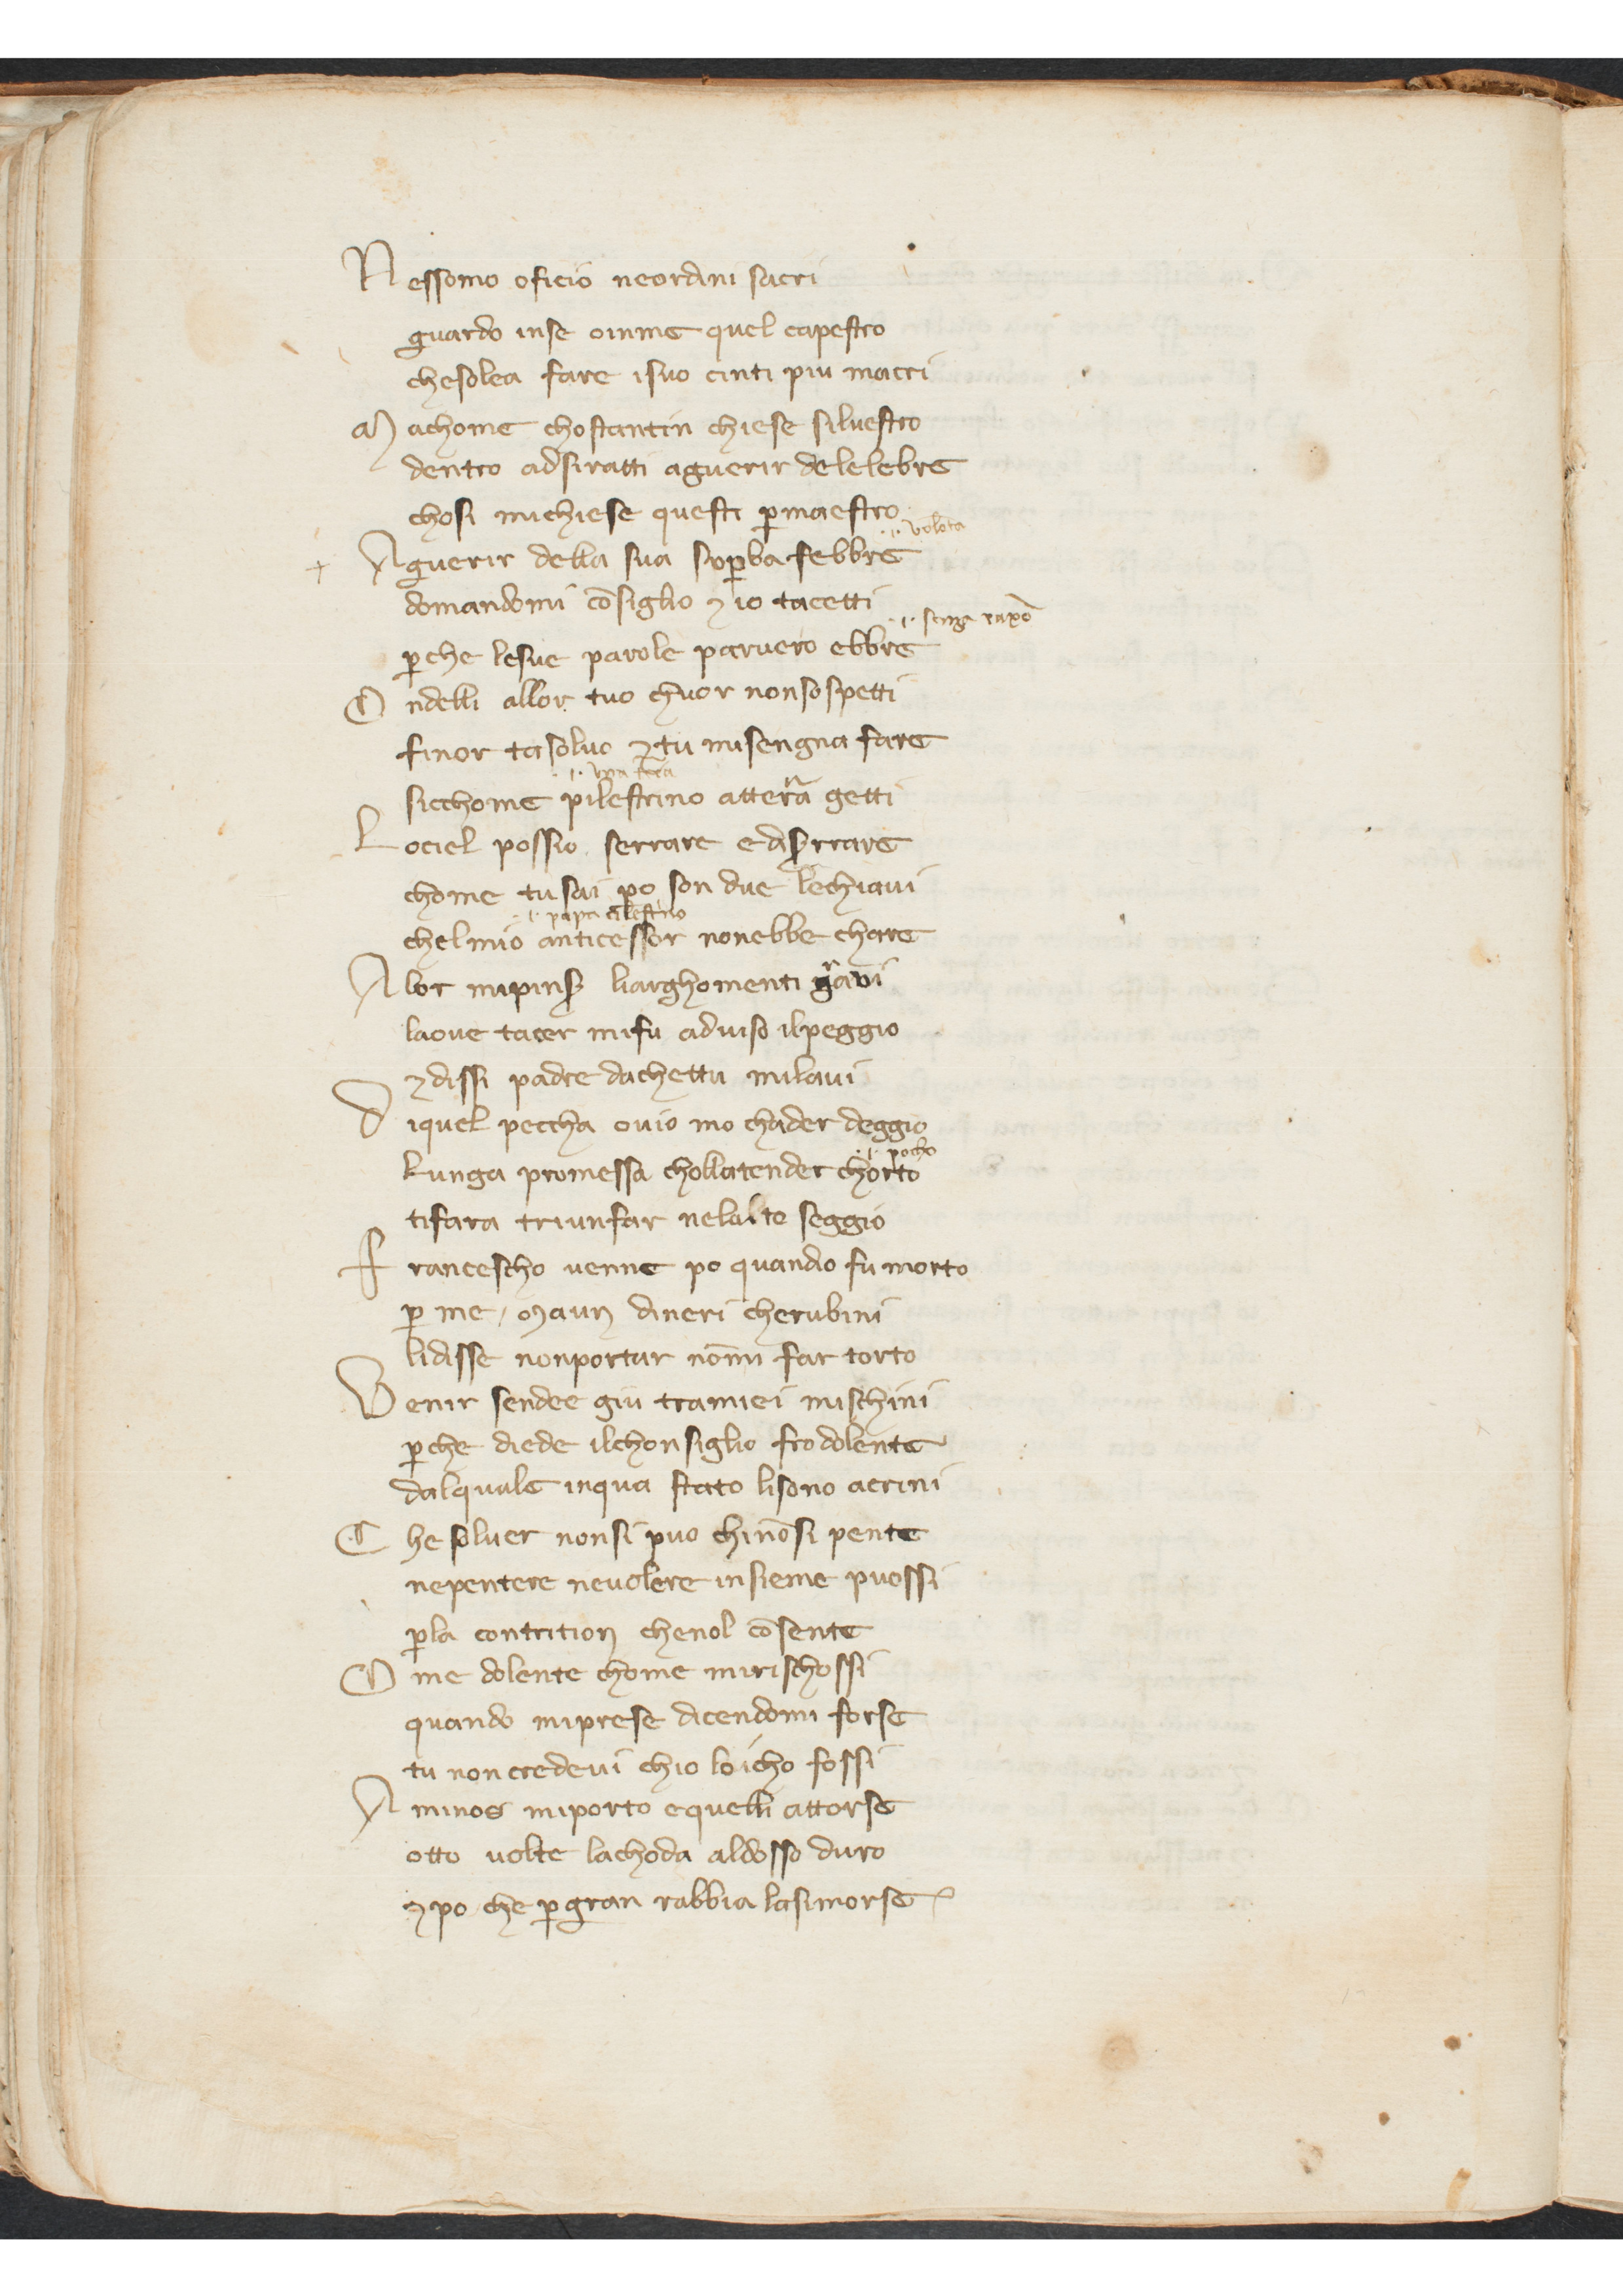 Nessomo oficio neordini sacri
guardo inse oinme quel capestro
chesolea fare isuo cinti piu macri
Machome chostantin chiese silvestro
dentro adsiratti aguerir delelebre
chosi michiese questi ꝑmaestro
volota
+ Aguerir della sua suꝑba febbre
domandomi cōsiglio ⁊ io tacetti
senza raxō
ꝑche lesue parole parvero ebbre
Ondelli allor tuo chuor nonsospetti
finor tasolvo ⁊ tu misengna fare
una
sicchome pilestrino atterra getti
Lociel possio serrare ediserrare
chome tusai ꝑo son due lechiavi
papa cilestino
chelmio anticessor nonebbe chare
Alor mipinse liarghomenti gravi
laove tacer mifu adviso ilpeggio
⁊dissi padre dachettu milavi
Diquel peccha ovio mo chader deggio
pocho
Lunga promessa chollatender chorto
tifara triunfar nelalto seggio
Francescho venne po quando fu morto
ꝑ me / Maun dineri cherubini
lidisse nonportar nōmi far torto
Venir sendee giu tramiei mischini
ꝑche diede ilchonsiglio frodolente
dalquale inqua stato lisono accrini
Che solver nonsi puo chinōsi pente
nepentere nevolere insieme puossi
ꝑla contrition chenol cōsente
Ome dolente chome mirischossi
quando miprese dicendomi forse
tu non credevi chio loicho fossi
Aminos miporto equelli attorse
otto volte lachoda aldosso duro
⁊ po che ꝑgran rabbia lasimorse